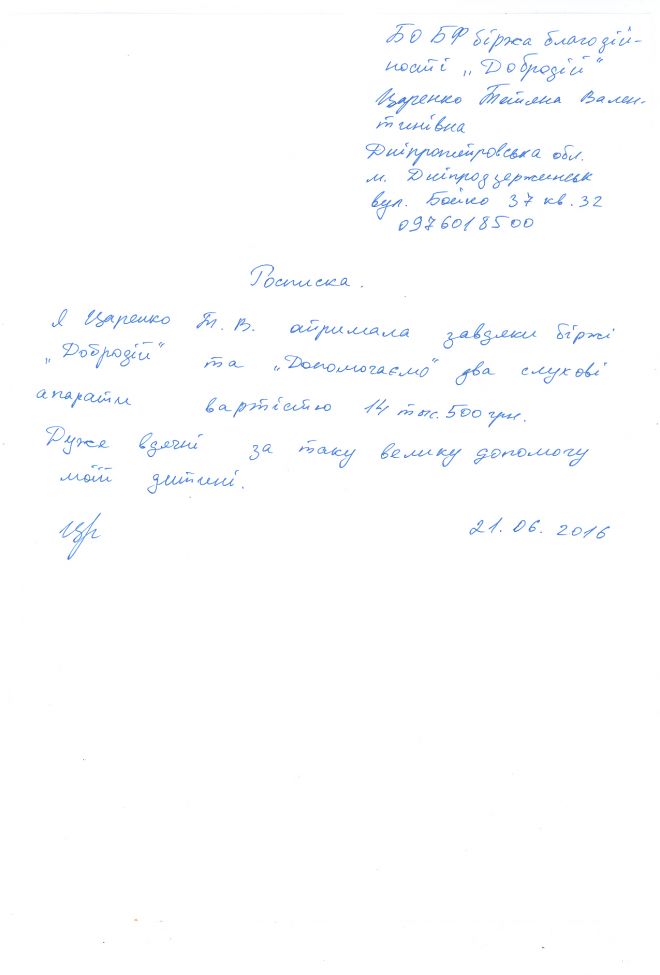 БО БФ біржа благодій-
ності „Добродій“
Царенко Тетяна Вален-
тинівна
Дніпропетровська обл.
м. Дніпродзержинськ
вул. Бойко 37 кв. 32
0976018500
Росписка.
Я Царенко Т. В. отримала завдяки біржі
„Добродій“ та „Допомогаємо“ два слухові
апарати вартістю 14 тыс. 500 грн.
Дуже вдячні за таку велику допомогу
моїй дитині.
21.06.2016